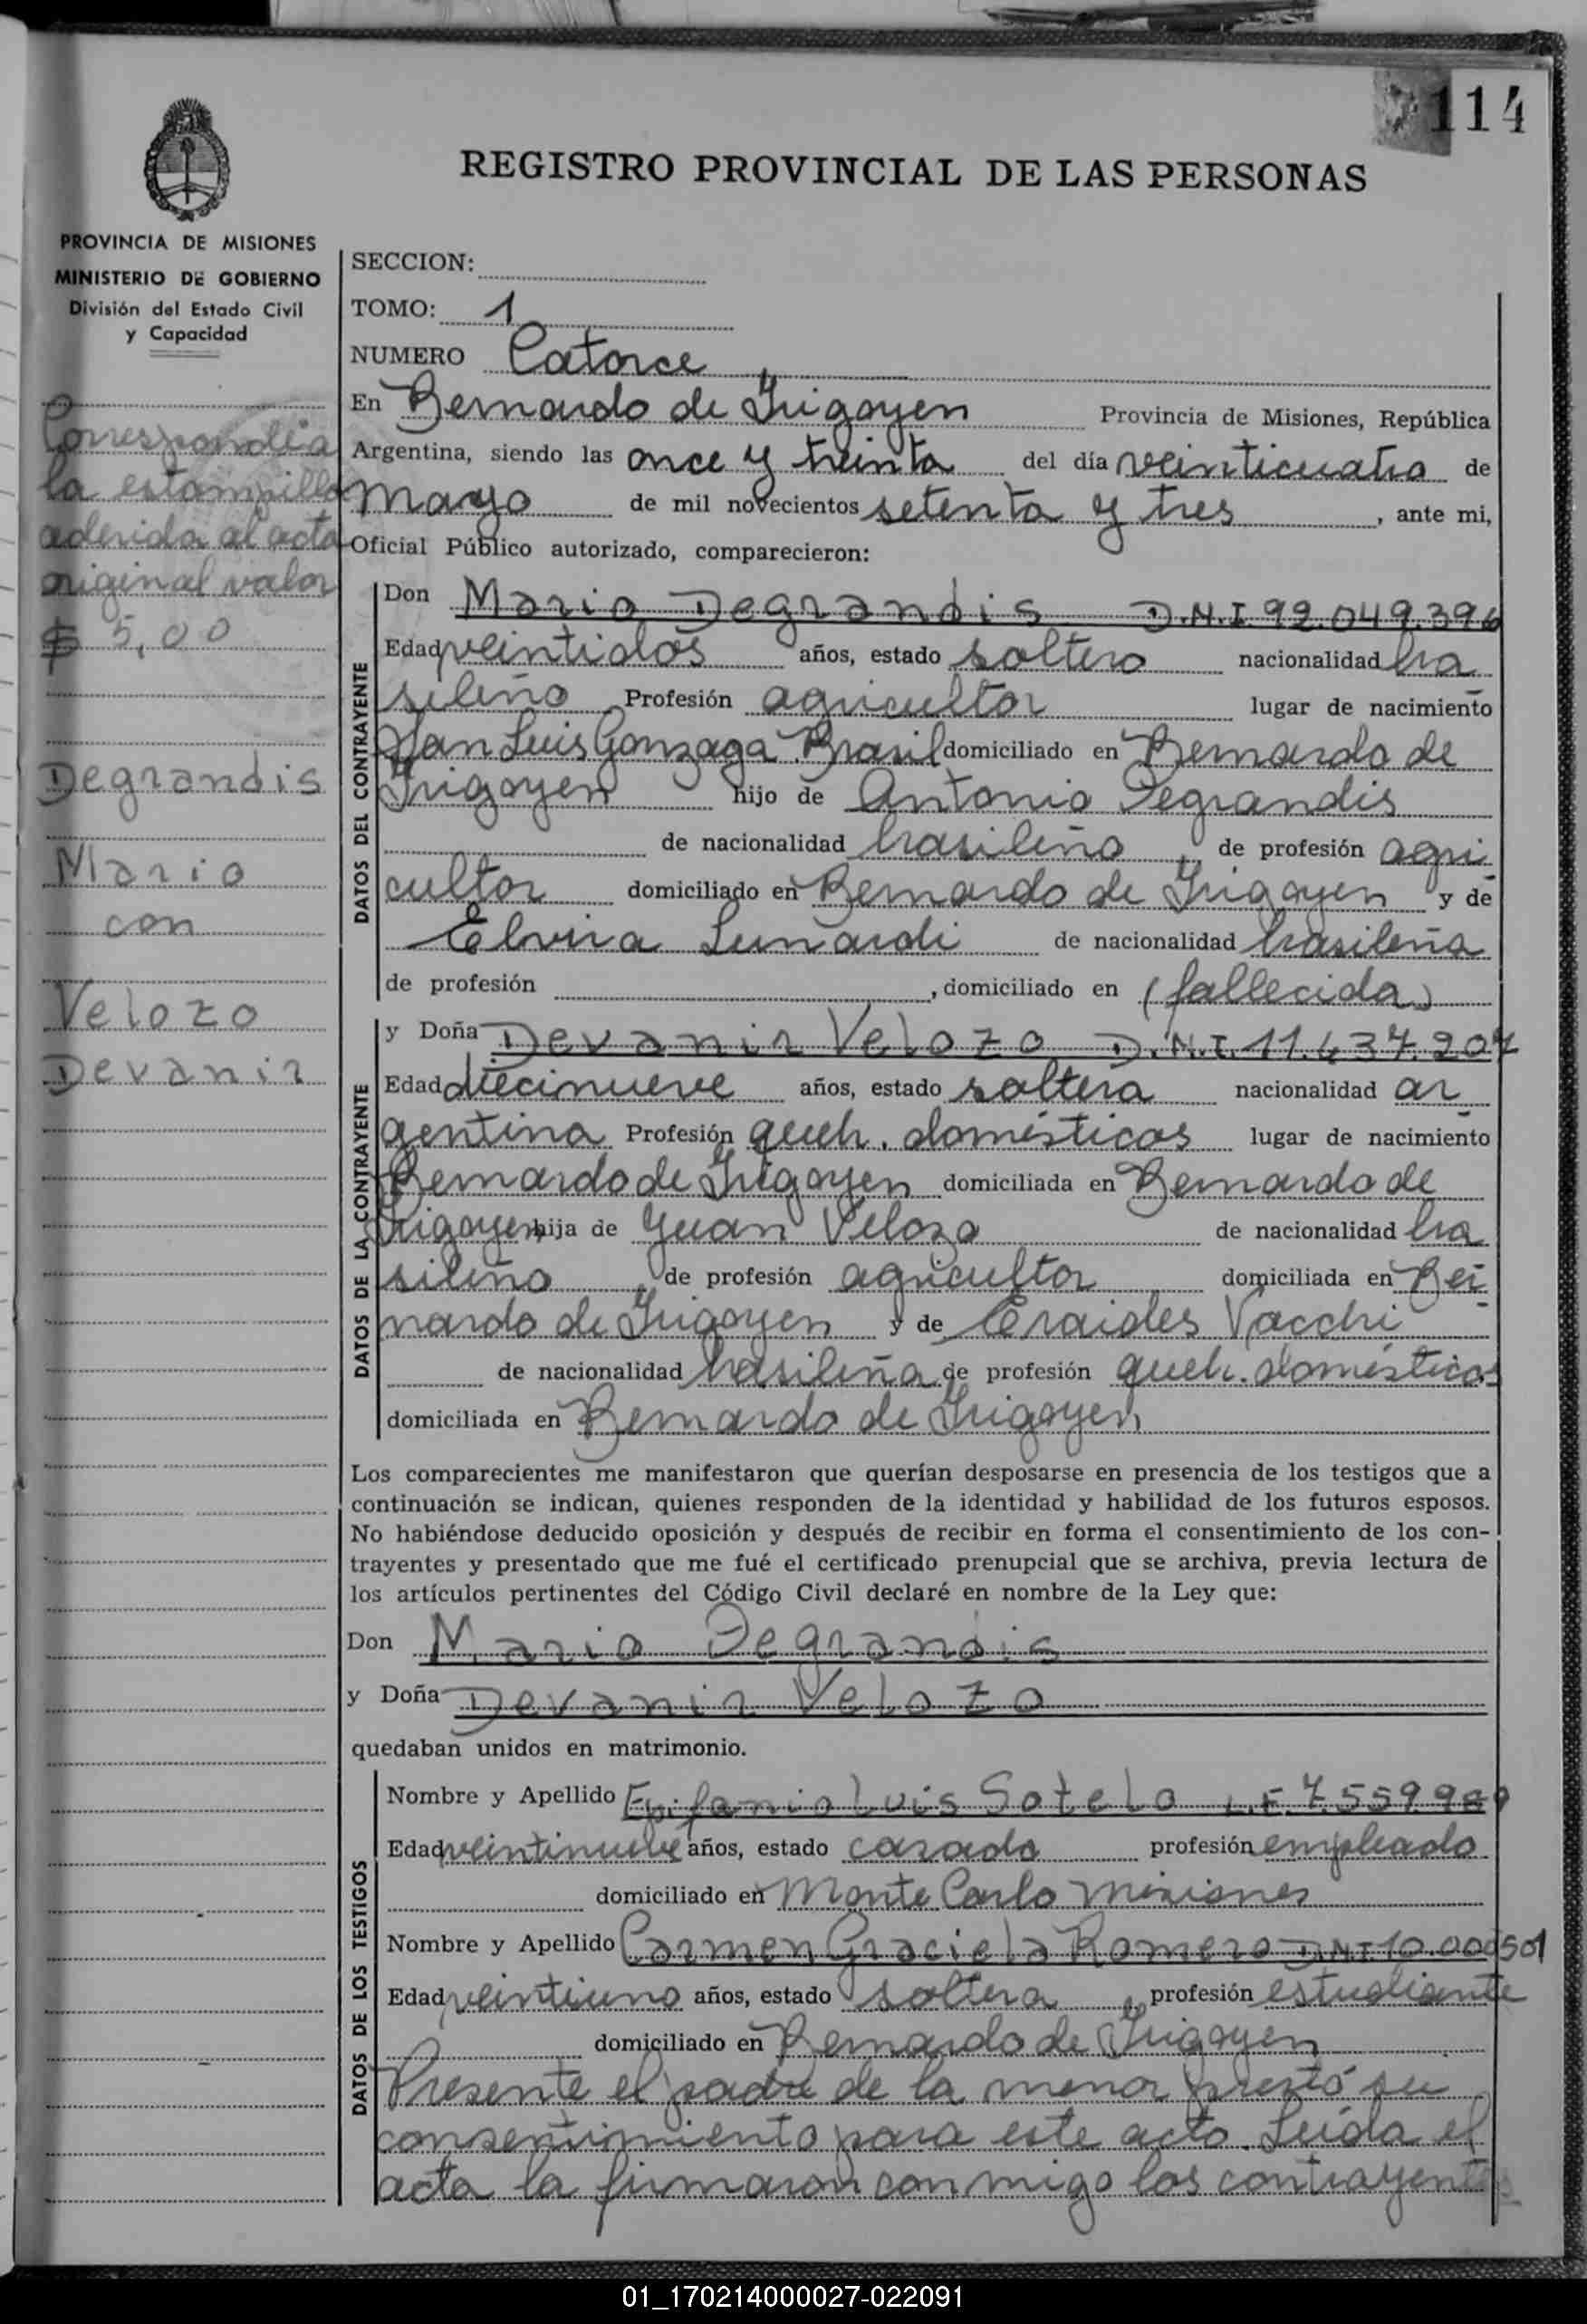 114
REGISTRO PROVINCIAL DE LAS PERSONAS
PROVINCIA DE MISIONES
MINISTERIO DE GOBIERNO
División del Estado Civil
y Capacidad
Correspondía
la estampilla
aderida al acta
original valor
$ 5,00
Degrandis
Mario
con
Velozo
Devanir
SECCION:
TOMO: 1
NUMERO Catorce
En Bernardo de Irigoyen Provincia de Misiones, República
Argentina, siendo las once y treinta del día veinticuatro de
mayo de mil novecientos setenta y tres, ante mi,
Oficial Público autorizado, comparecieron:
DATOS DEL CONTRAYENTE
Don Mario Degrandis D.N.I. 92.049.396
Edad veintidos años, estado soltero nacionalidad bra
sileño Profesión agricultor lugar de nacimiento
San Luis Gonzaga Brasil domiciliado en Bernardo de
Irigoyen hijo de Antonio Degrandis
de nacionalidad brasileño, de profesión agri
cultor domiciliado en Bernardo de Irigoyen y de
Elvira Lunardi de nacionalidad brasileña
de profesión , domiciliado en (fallecida)
DATOS DE LA CONTRAYENTE
y Doña Devanir Velozo D.N.I. 11.637.207
Edad diecinueve años, estado soltera nacionalidad ar
gentina Profesión queh. domésticos lugar de nacimiento
Bernardo de Irigoyen domiciliada en Bernardo de
Irigoyen hija de Juan Velozo de nacionalidad bra
sileño, de profesión agricultor domiciliada en Ber
nardo de Irigoyen y de Eraides Vacchi
de nacionalidad brasileña de profesión queh. domésticos
domiciliada en Bernardo de Irigoyen
Los comparecientes me manifestaron que querían desposarse en presencia de los testigos que a
continuación se indican, quienes responden de la identidad y habilidad de los futuros esposos.
No habiéndose deducido oposición y después de recibir en forma el consentimiento de los con-
trayentes y presentado que me fué el certificado prenupcial que se archiva, previa lectura de
los artículos pertinentes del Código Civil declaré en nombre de la Ley que:
Don Mario Degrandis
y Doña Devanir Velozo
quedaban unidos en matrimonio.
DATOS DE LOS TESTIGOS
Nombre y Apellido Epifanio Luis Sotelo L.E.
Edad veintinueve años, estado casado profesión empleado
domiciliado en Monte Carlo Misiones
Nombre y Apellido Carmen Graciela Romero D.N.I. 10.000501
Edad veintiuno años, estado soltera, profesión estudiante
domiciliado en Bernardo de Irigoyen
Presente el padre de la menor prestó su
consentimiento para este acto. Leída el
acta la firmaron conmigo los contrayentes
01_170214000027-022091